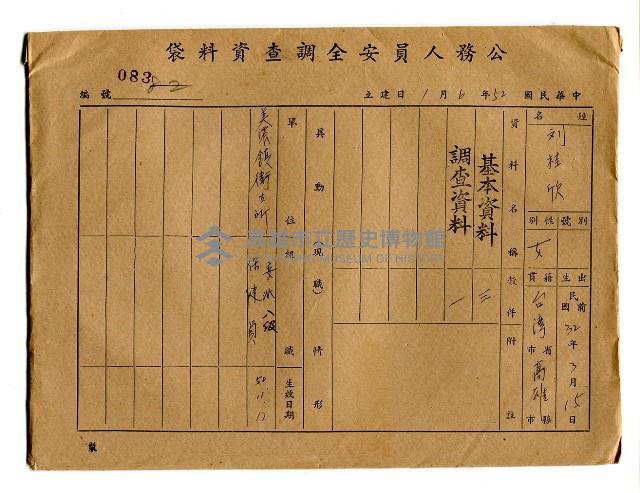 公務人員安全調查資料袋
編號 083 82
中華民國52年6月1日建立
姓名 刘桂欣
別號
性別 女
出生 民國前32年3月15日
籍貫 台湾省市 高雄縣市
資料名稱 件數 附註
基本資料 三
調查資料 一
異動(現職)情形
單位 組 職 生效日期
美濃鎮衛生所
委派八級
保健員
50.11.17
高雄市立歷史博物館
KAOHSIUNG MUSEUM OF HISTORY